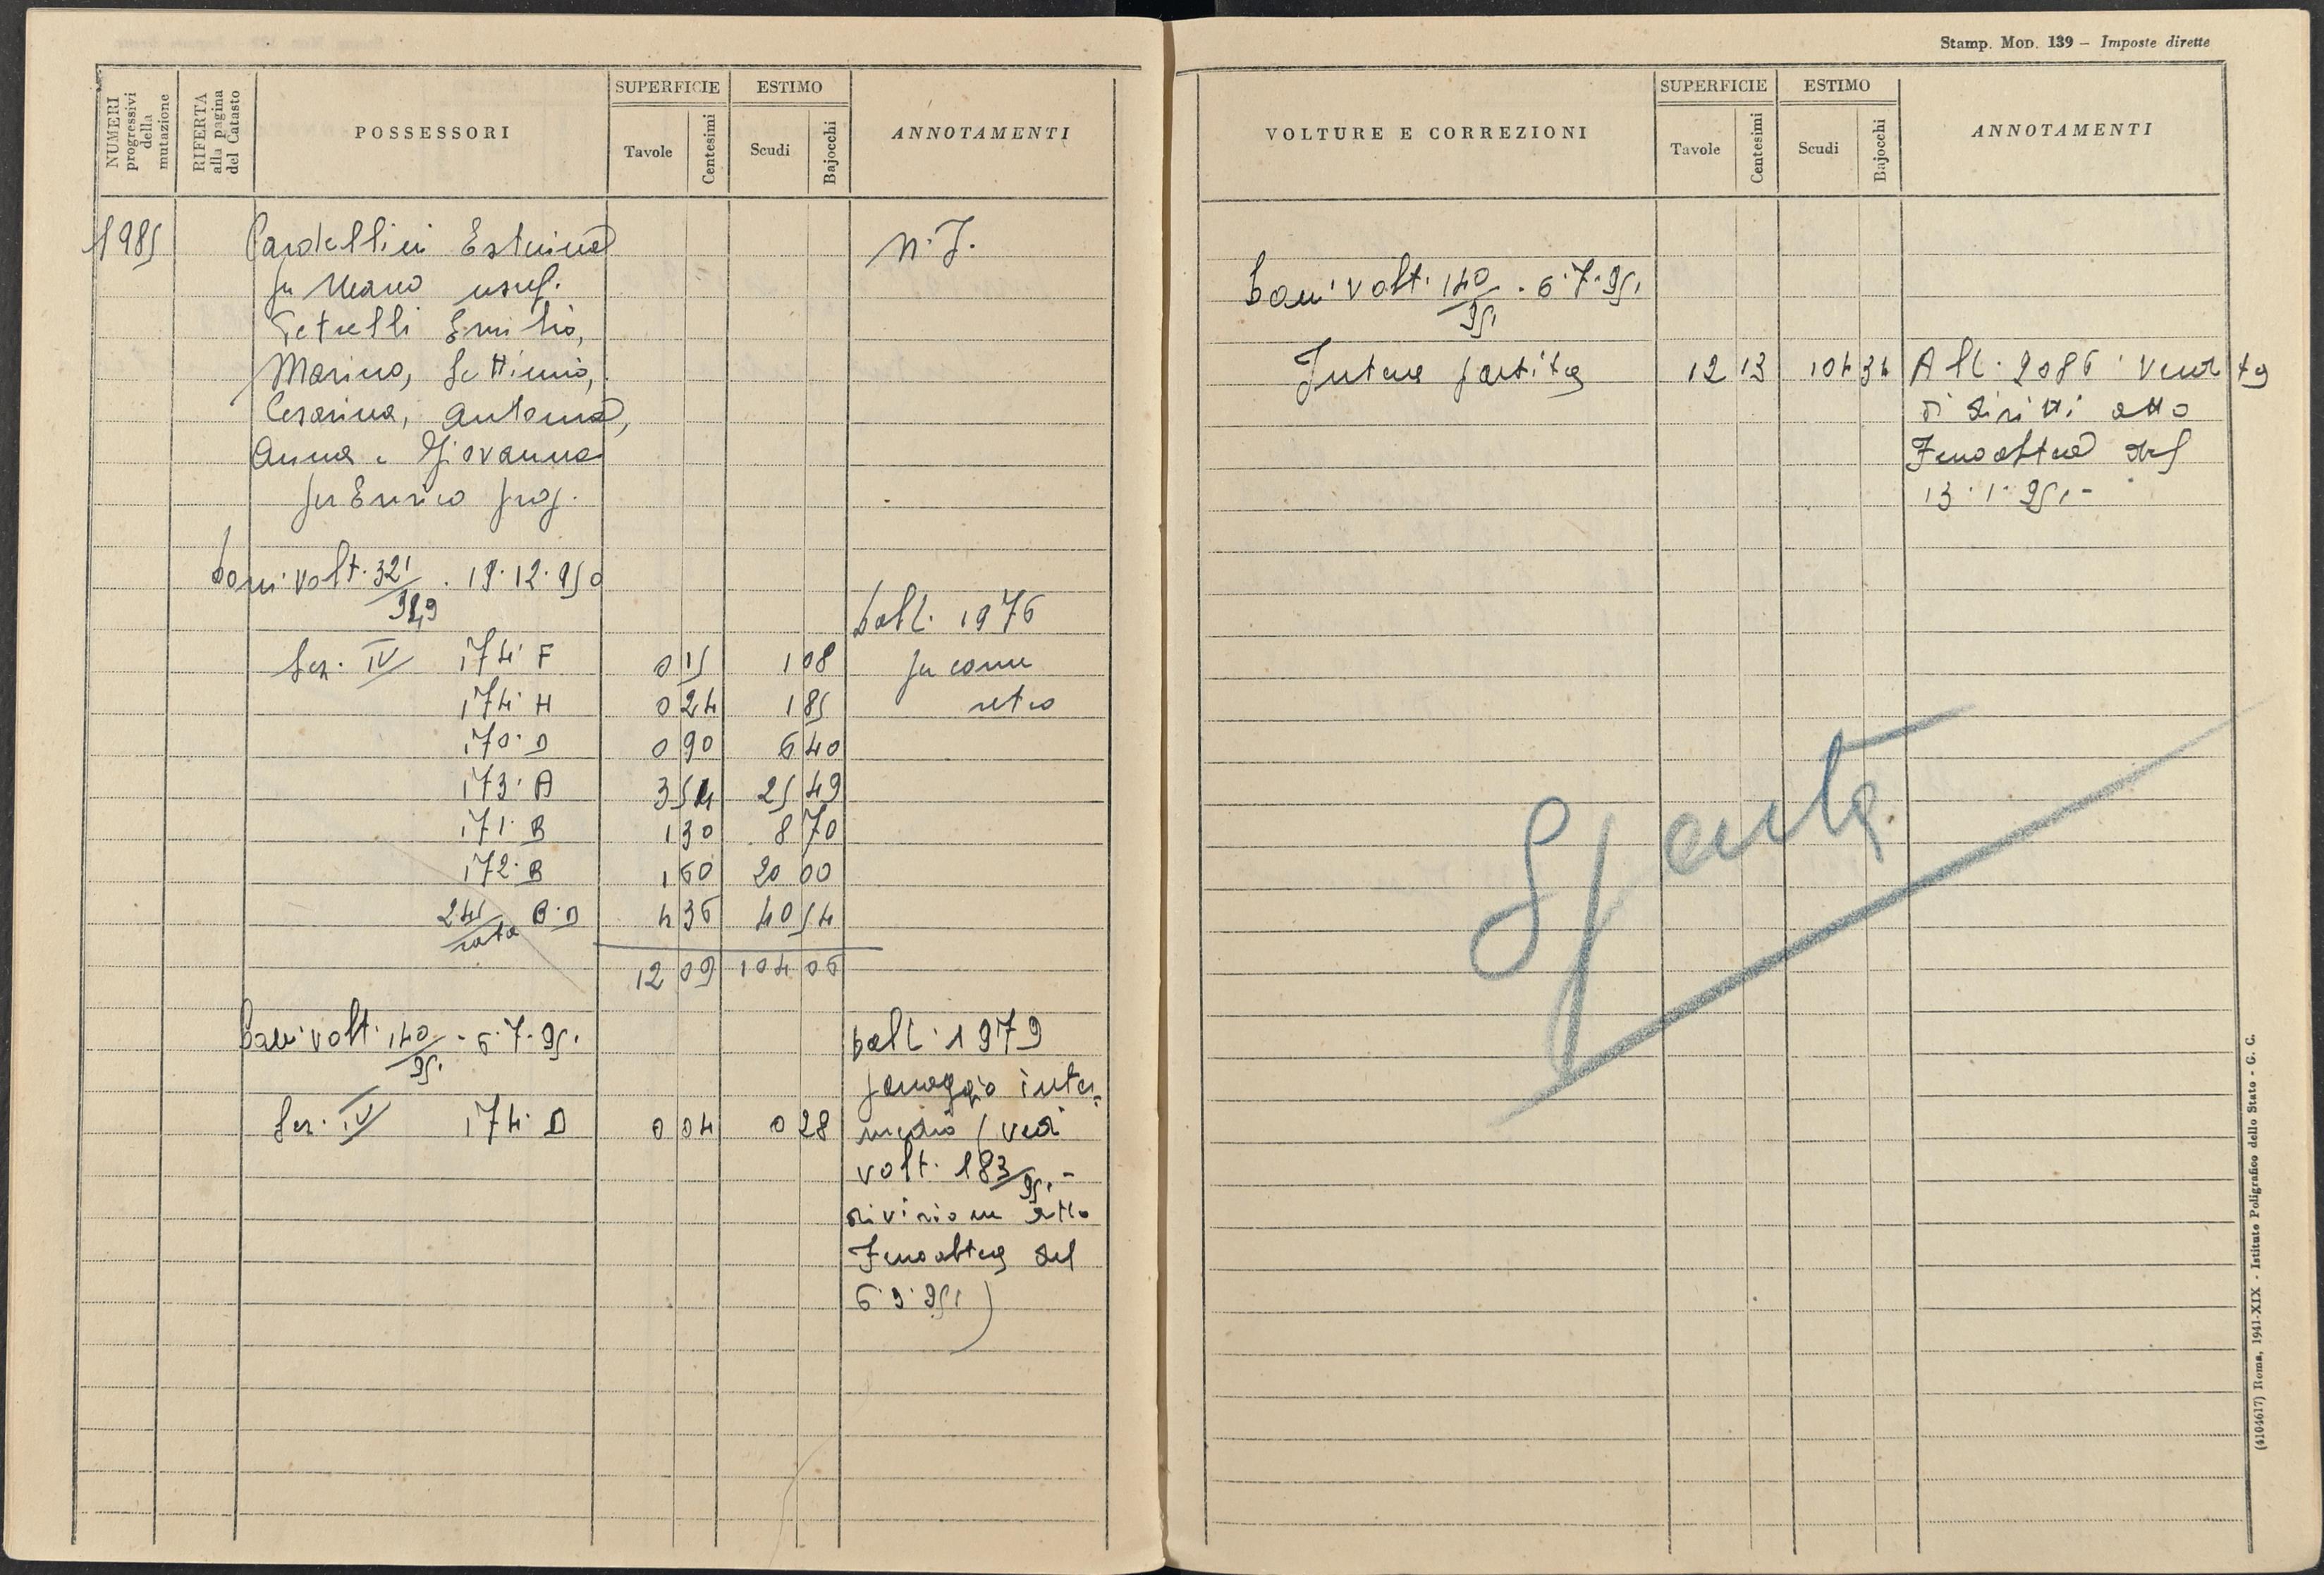 NUMERI progressivi della mutazione
RIFERTA alla pagina del Catasto
POSSESSORI
SUPERFICIE
Tavole
Centesimi
ESTIMO
Scudi
Bajocchi
ANNOTAMENTI
1985
Pardellini Esterina
fu usuf.
Petrelli Emilio,
Marino, Settimio,
Cesarina, Antonia,
Anna e Giovanna
fu Enrico prop.
n. I.
Dom. volt. 321/949 . 19.12.950
Dall. 1976
Sez. IV 174. F 0 15 1 08 fu come
174. H 0 24 1 85 retro
170. D 0 90 6 40
173. A 3 54 25 49
171. B 1 30 8 70
172. B 1 60 20 00
241/rata B.D 4 36 40 54
12 09 104 06
Dom. volt. 140/951 . 6.7.951
Dall. 1979
passaggio inter=
Sez. IV 174. D 0 04 0 28 medio (vedi
volt. 183/951 -
divisione atto
del
6.3.951)
Stamp. Mod. 139 – Imposte dirette
VOLTURE E CORREZIONI
SUPERFICIE
Tavole
Centesimi
ESTIMO
Scudi
Bajocchi
ANNOTAMENTI
Dom. volt. 140/951 . 6.7.951
Intera partita 12 13 104 34 All. 2086 vendita
di diritti atto
del
13.1.951 -
Spenta
(4104617) Roma, 1941-XIX - Istituto Poligrafico dello Stato - G. C.